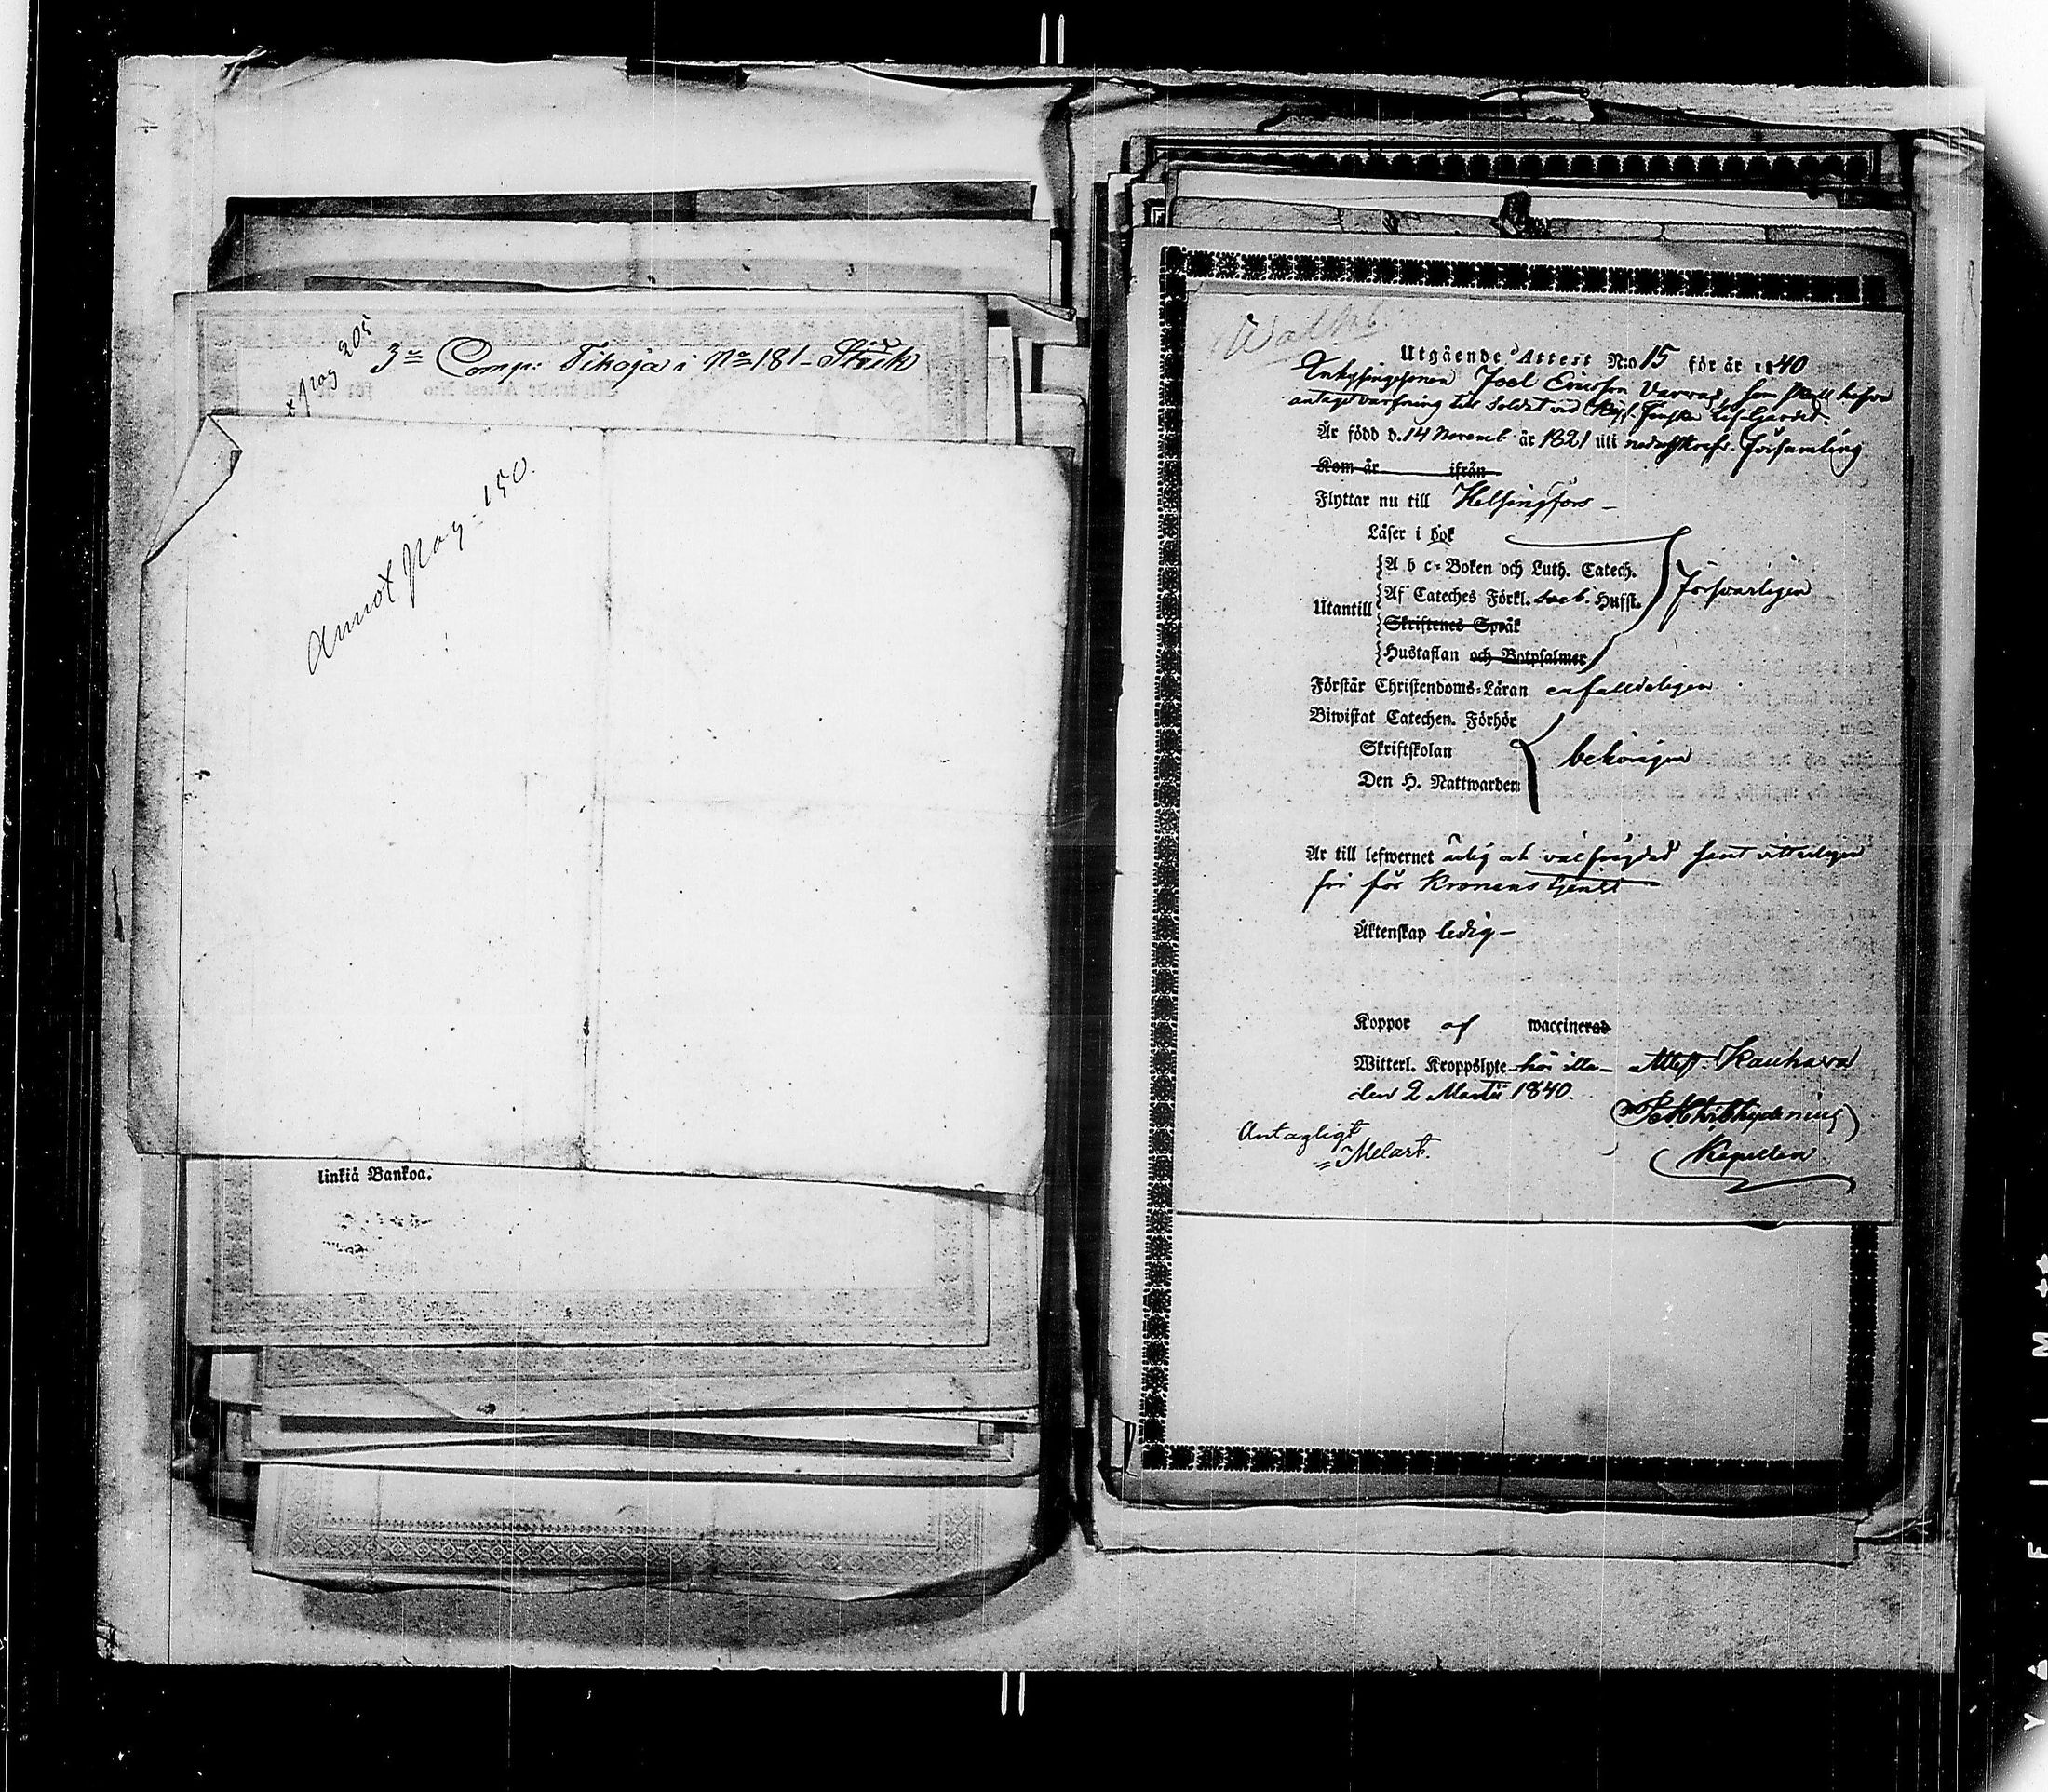 pag 205
3:e Comp: Tikoja i No 181 - Stårk
Annot pag - 150.
linkiä Bankoa.
Utgående Attest N:o 15 för år 1840
Inhysingesonen Joel Ericsson Varvas, som skall hafva
antagit värfning till Soldat vid Kejs. Finska Lif-Gardet.
Är född d. 14 Novemb. år 1821 uti nedanskrefne Församling
Kom år ifrån
Flyttar nu till Helsingfors -
Läser i bok
A b c-Boken och Luth. Catech.
Af Cateches Förkl. Hufst. försvarligen
Utantill
Skriftenes Språk
Hustaflan och Botpsalmer
Förstår Christendoms-Läran enfalldeligen
Biwistat Catechen. Förhör
Skriftskolan behörigen
Den H. Nattwarden
Är till lefwernet ärlig och välfrägdad samt vitterligen
fri för Kronans tjenst
Äktenskap ledig -
Koppor af waccinerad
Witterl. Kroppslyte hör illa - Attest. Kauhava
den 2 Martii 1840.
Antagligt
Melart.
Kapellan.